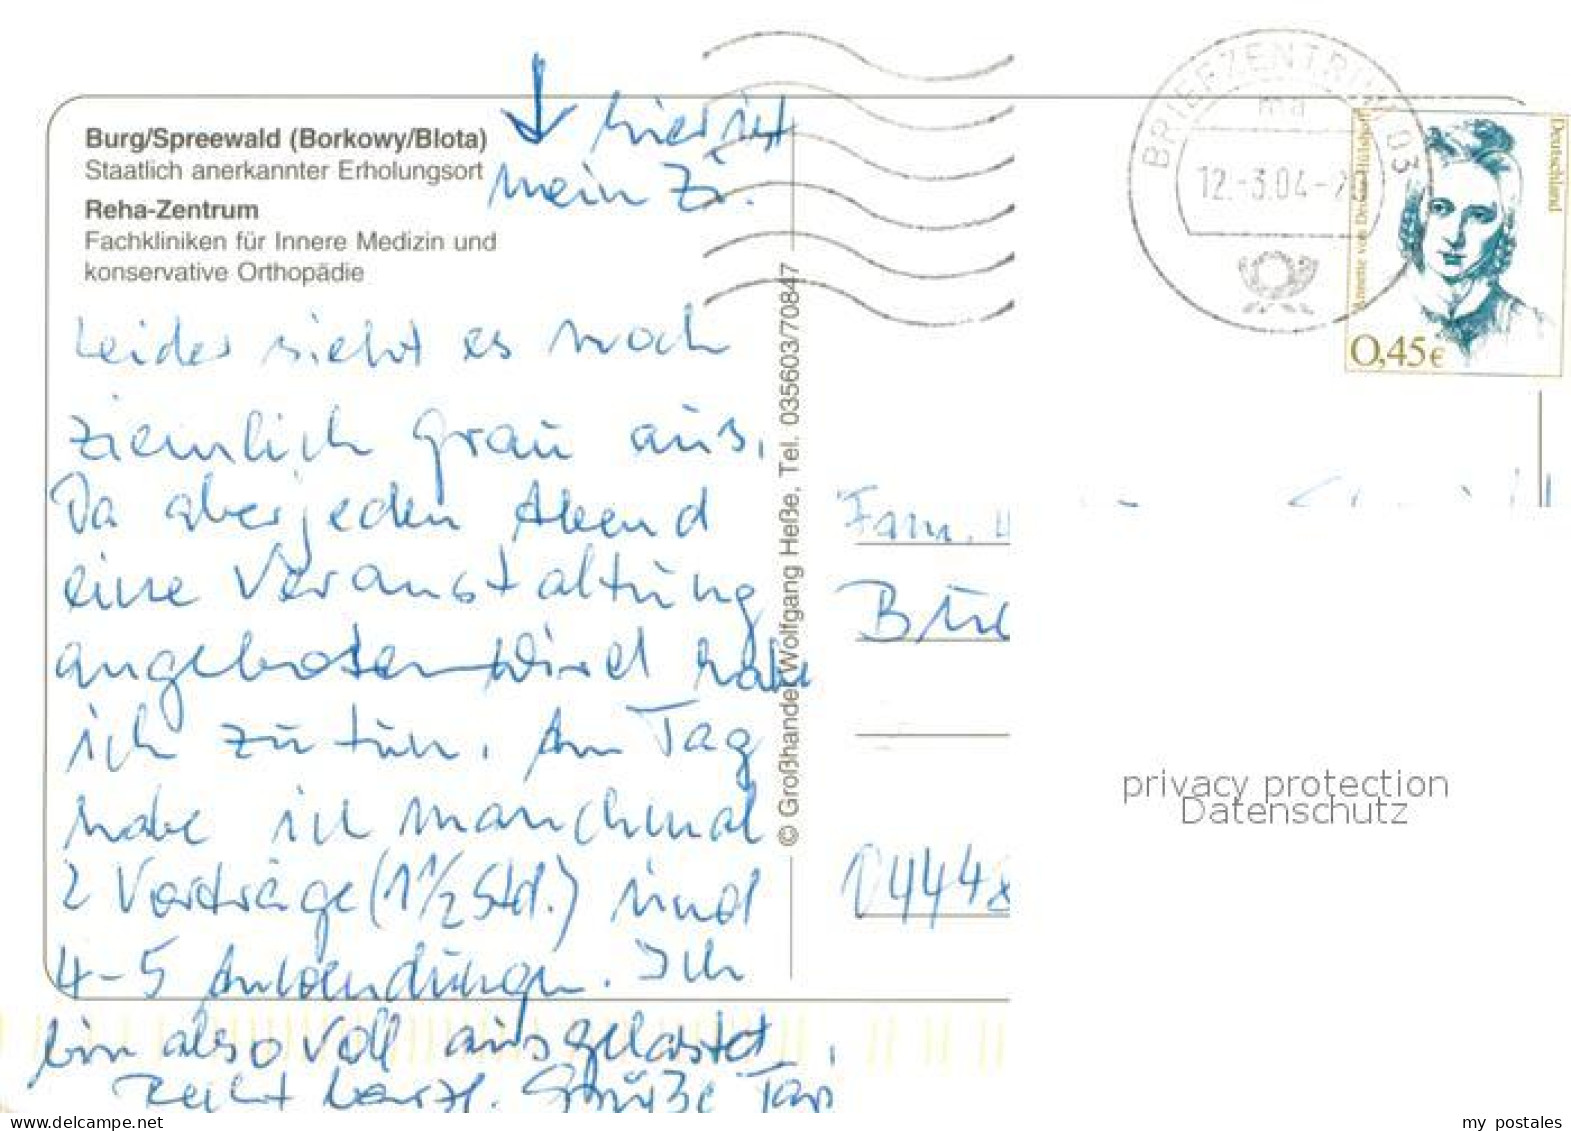 Burg/Spreewald (Borkowy/Blota)
Staatlich anerkannter Erholungsort
Reha-Zentrum
Fachkliniken für Innere Medizin und
konservative Orthopädie
hier ist
mein Zi.
Leider sieht es noch
ziemlich grau aus.
Da aber jeden Abend
eine Veranstaltung
angeboten wird habe
ich zu tun. Am Tag
habe ich manchmal
2 Vorträge (1 1/2 Std.) und
4-5 Anwendungen. Ich
bin also voll ausgelastet.
Recht herzl. Grüße
© Großhandel Wolfgang Heße, Tel. 035603/70847
BRIEFZENTRUM 03
ma
12.-3.04-2
Deutschland
Annette von Droste-Hülshoff
0,45€
Fam.
04448
privacy protection
Datenschutz
www.delcampe.net
my_postales